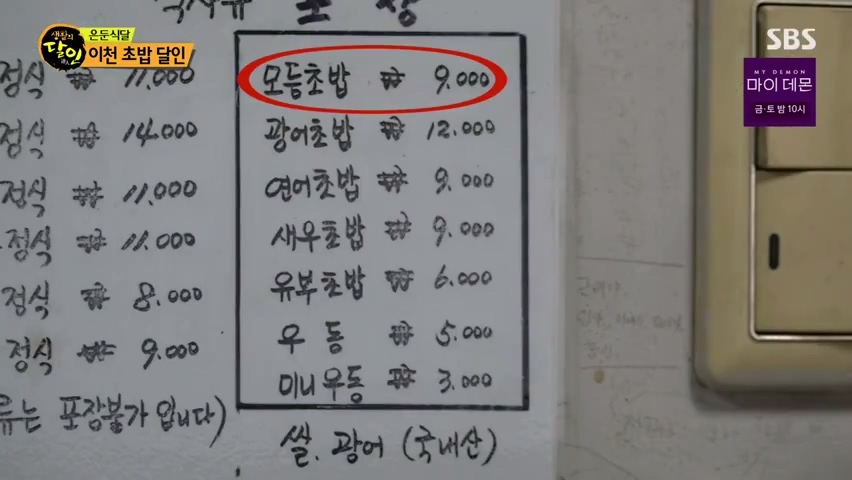 생활의
달인
은둔식달
이천 초밥 달인
SBS
MY DEMON
마이 데몬
금·토 밤 10시
포장
정식 ₩ 11.000
정식 ₩ 14.000
정식 ₩ 11.000
정식 ₩ 11.000
정식 ₩ 8.000
정식 ₩ 9.000
류는 포장불가 입니다)
모듬초밥 ₩ 9.000
광어초밥 ₩ 12.000
연어초밥 ₩ 9.000
새우초밥 ₩ 9.000
유부초밥 ₩ 6.000
우동 ₩ 5.000
미니우동 ₩ 3.000
쌀. 광어 (국내산)